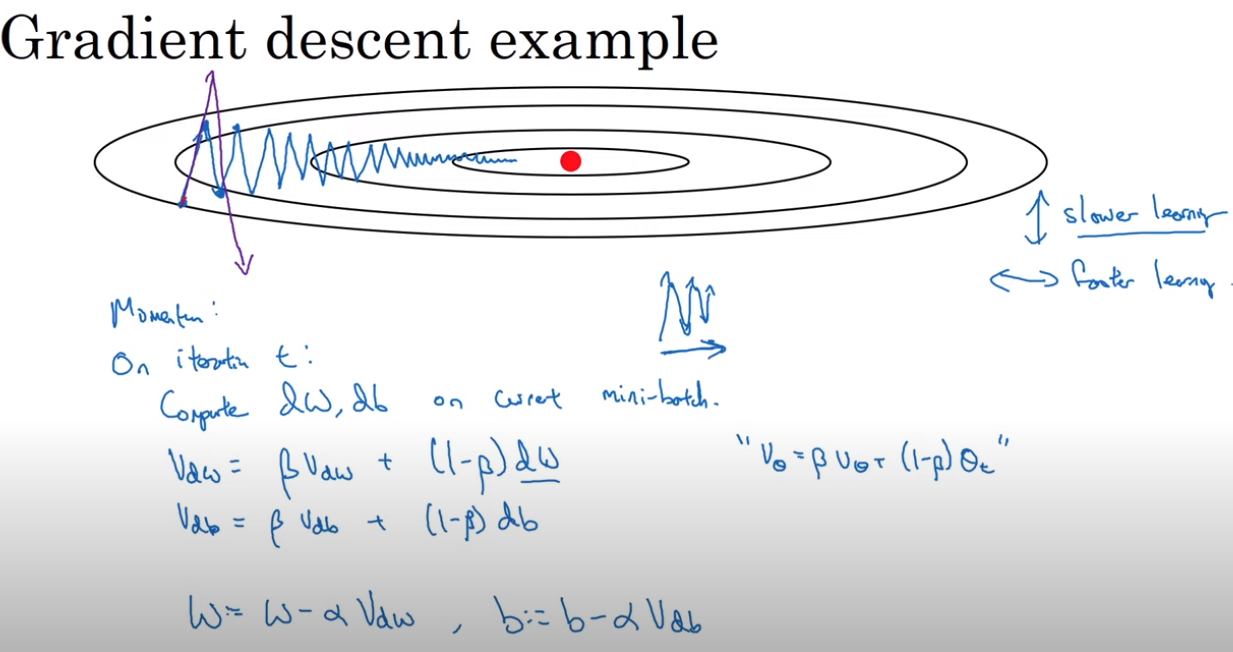 Gradient descent example
↕ slower learning
↔ faster learning
Momentum:
On iteration t:
Compute dW, db on current mini-batch.
Vdw = β Vdw + (1-β) dW
"Vθ = β Vθ + (1-β) θt"
Vdb = β Vdb + (1-β) db
W:= W - α Vdw , b:= b - α Vdb